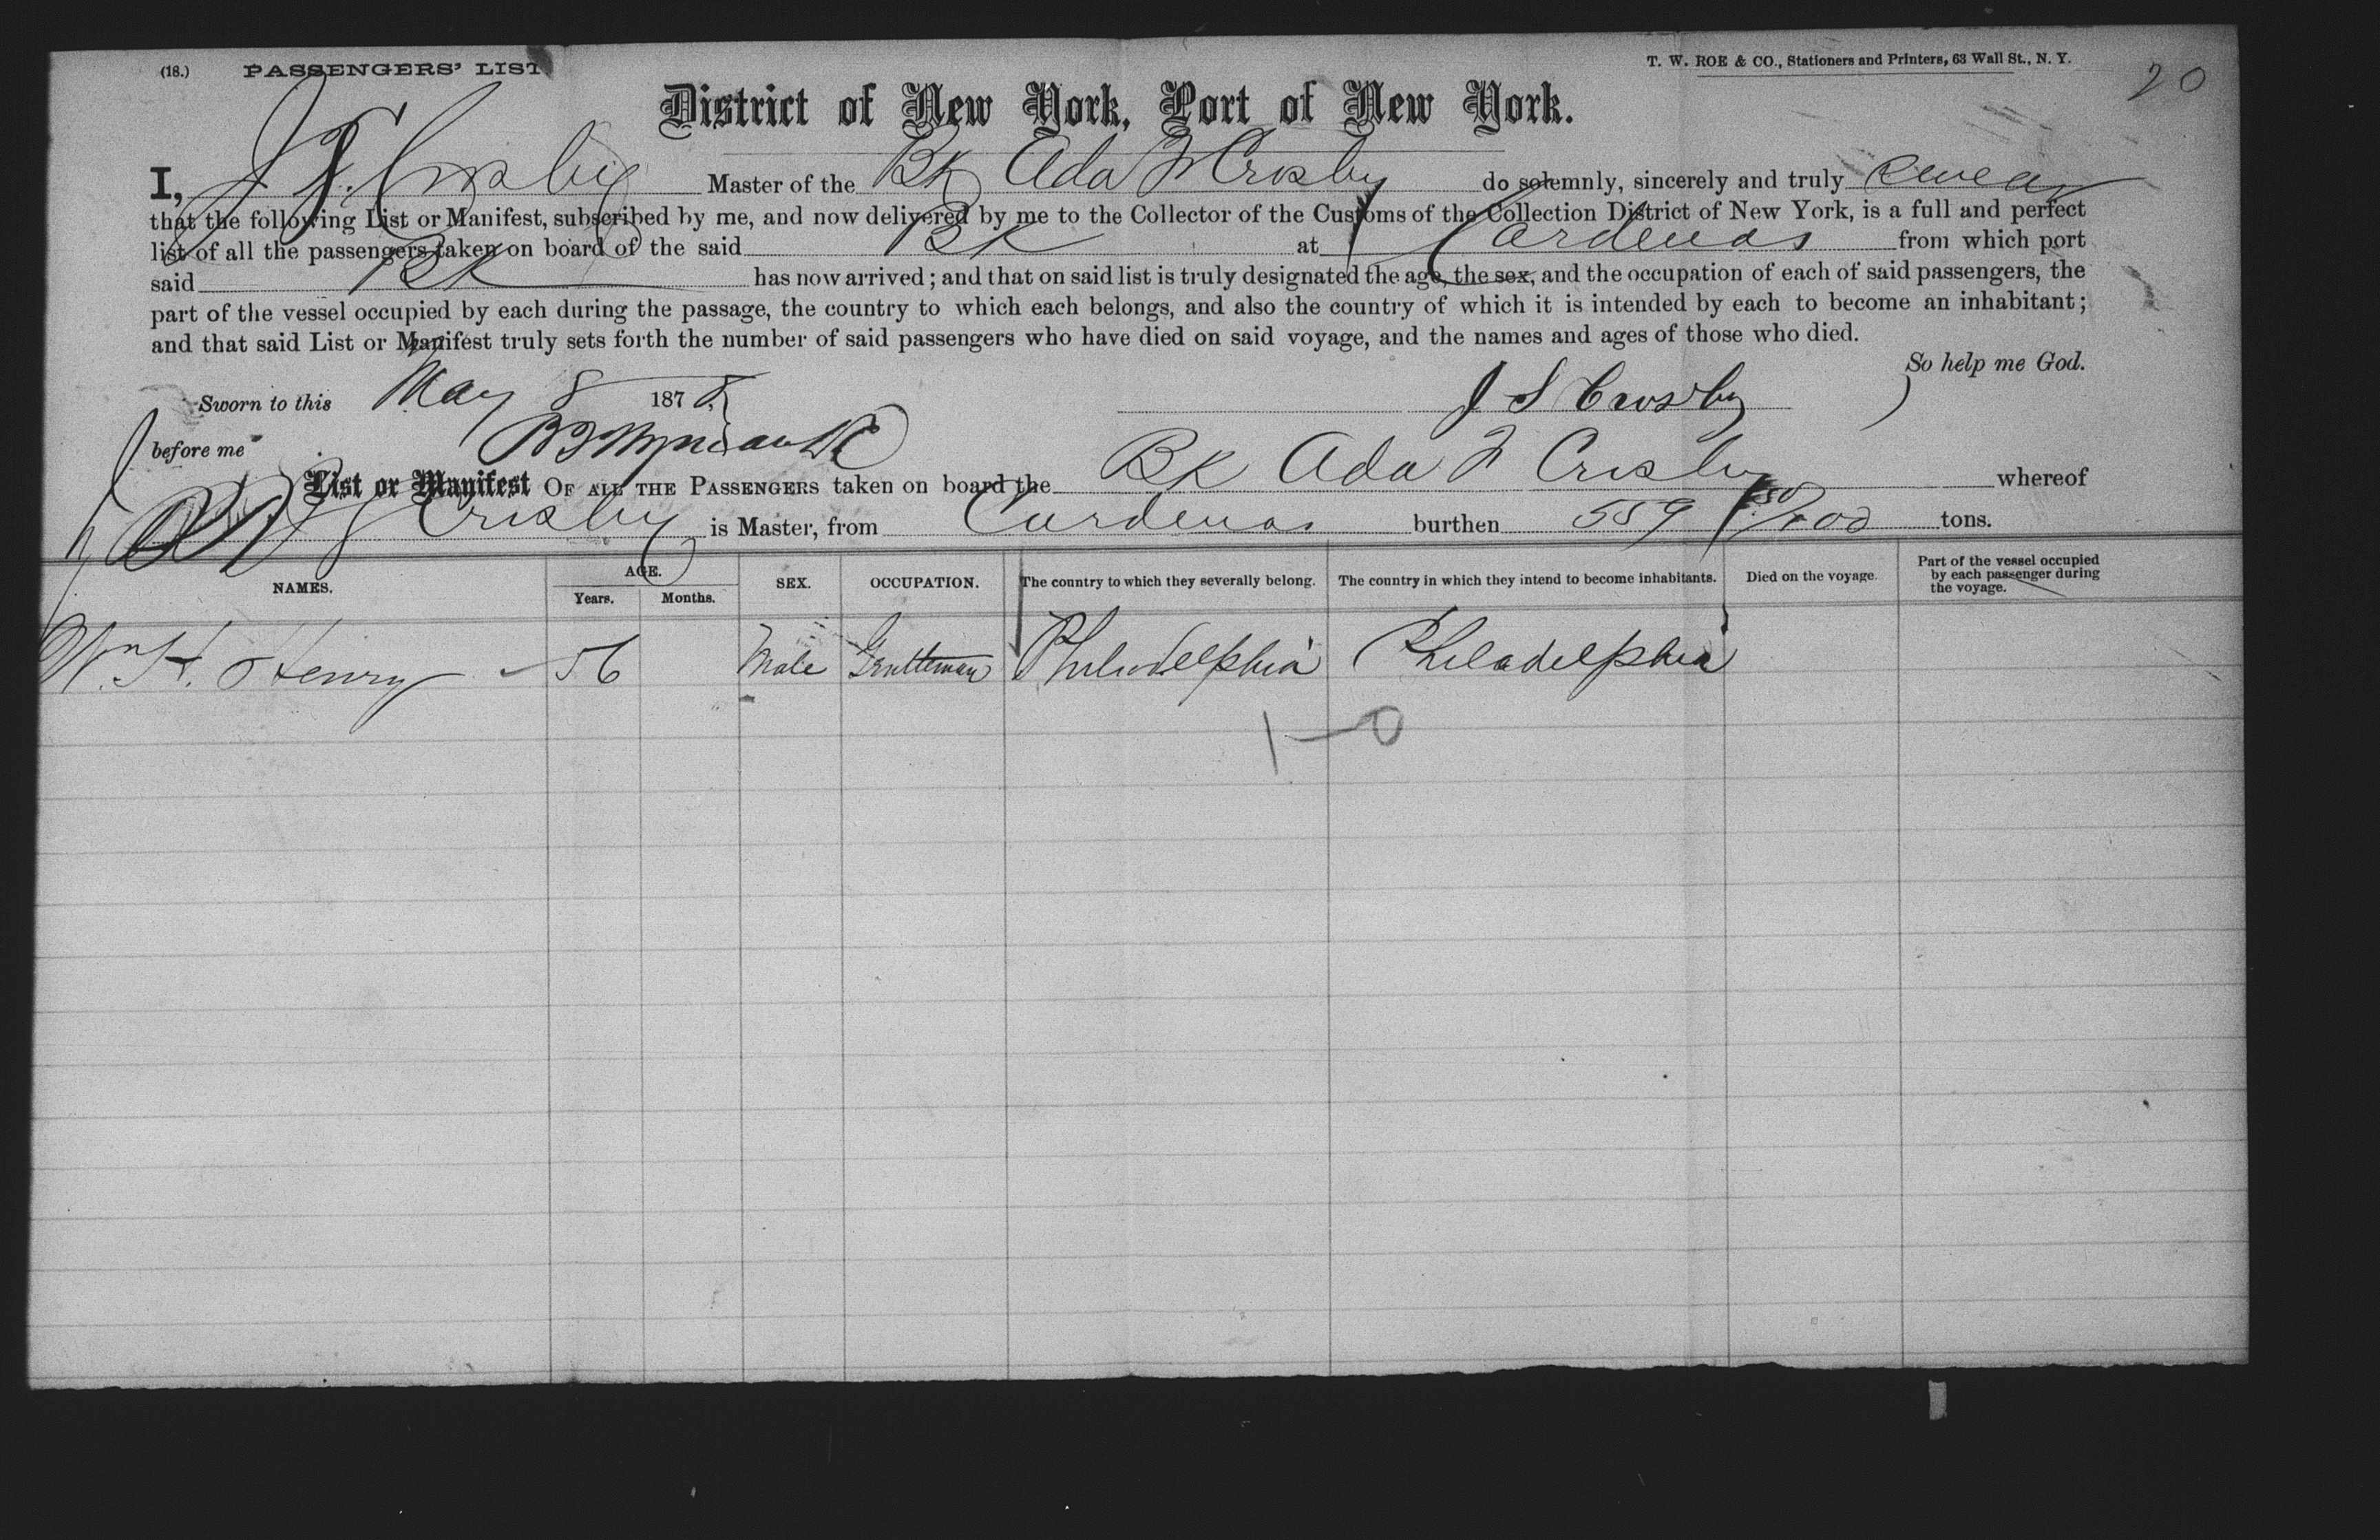 (18.) PASSENGERS' LIST
T. W. ROE & CO., Stationers and Printers, 63 Wall St., N. Y.
20
District of New York, Port of New York.
I, Crosby Master of the Bk Ada F Crosby do solemnly, sincerely and truly swear
that the following List or Manifest, subscribed by me, and now delivered by me to the Collector of the Customs of the Collection District of New York, is a full and perfect
list of all the passengers taken on board of the said Bk at Cardenas from which port
said Bk has now arrived; and that on said list is truly designated the age, the sex, and the occupation of each of said passengers, the
part of the vessel occupied by each during the passage, the country to which each belongs, and also the country of which it is intended by each to become an inhabitant;
and that said List or Manifest truly sets forth the number of said passengers who have died on said voyage, and the names and ages of those who died.
So help me God.
Sworn to this May 8 1878 J S Crosby
before me
List or Manifest OF ALL THE PASSENGERS taken on board the Bk Ada F Crosby whereof
Crosby is Master, from Cardenas burthen 559 50/100 tons.
NAMES. AGE. Years. Months. SEX. OCCUPATION. The country to which they severally belong. The country in which they intend to become inhabitants. Died on the voyage. Part of the vessel occupied by each passenger during the voyage.
Wm H. Henry 56 Male Gentleman Philadelphia Philadelphia
1-0